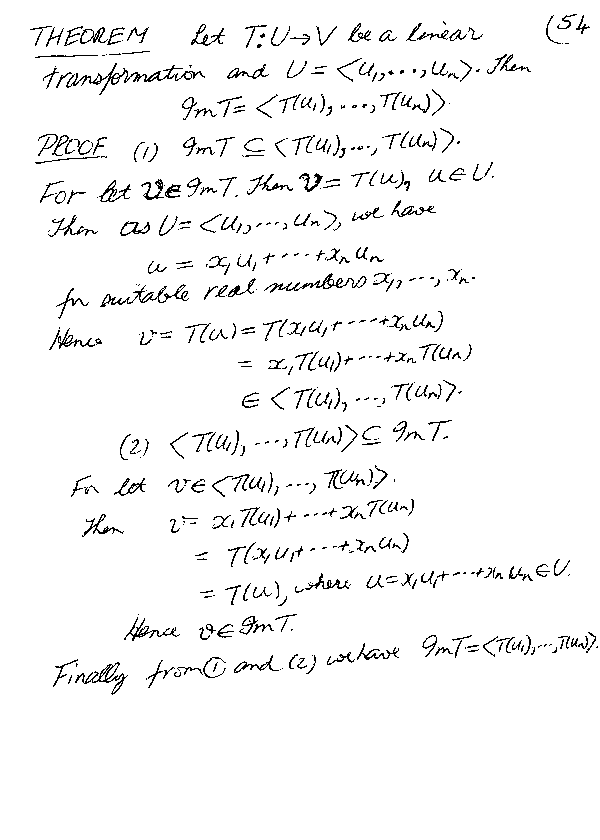 THEOREM Let T:U→V be a linear (54
transformation and U = <u₁,...,uₙ>. Then
ImT = <T(u₁),...,T(uₙ)>.
PROOF (1) ImT ⊆ <T(u₁),..., T(uₙ)>.
For let v∈ImT. Then v = T(u), u∈U.
Then as U = <u₁,...,uₙ>, we have
u = x₁u₁+···+xₙuₙ
for suitable real numbers x₁,...,xₙ.
Hence v = T(u) = T(x₁u₁+···+xₙuₙ)
= x₁T(u₁)+···+xₙT(uₙ)
∈ <T(u₁),...,T(uₙ)>.
(2) <T(u₁),...,T(uₙ)> ⊆ ImT.
For let v∈<T(u₁),..., T(uₙ)>.
Then v = x₁T(u₁)+···+xₙT(uₙ)
= T(x₁u₁+···+xₙuₙ)
= T(u), where u=x₁u₁+···+xₙuₙ∈U.
Hence v∈ImT.
Finally from ① and (2) we have ImT=<T(u₁),...,T(uₙ)>.